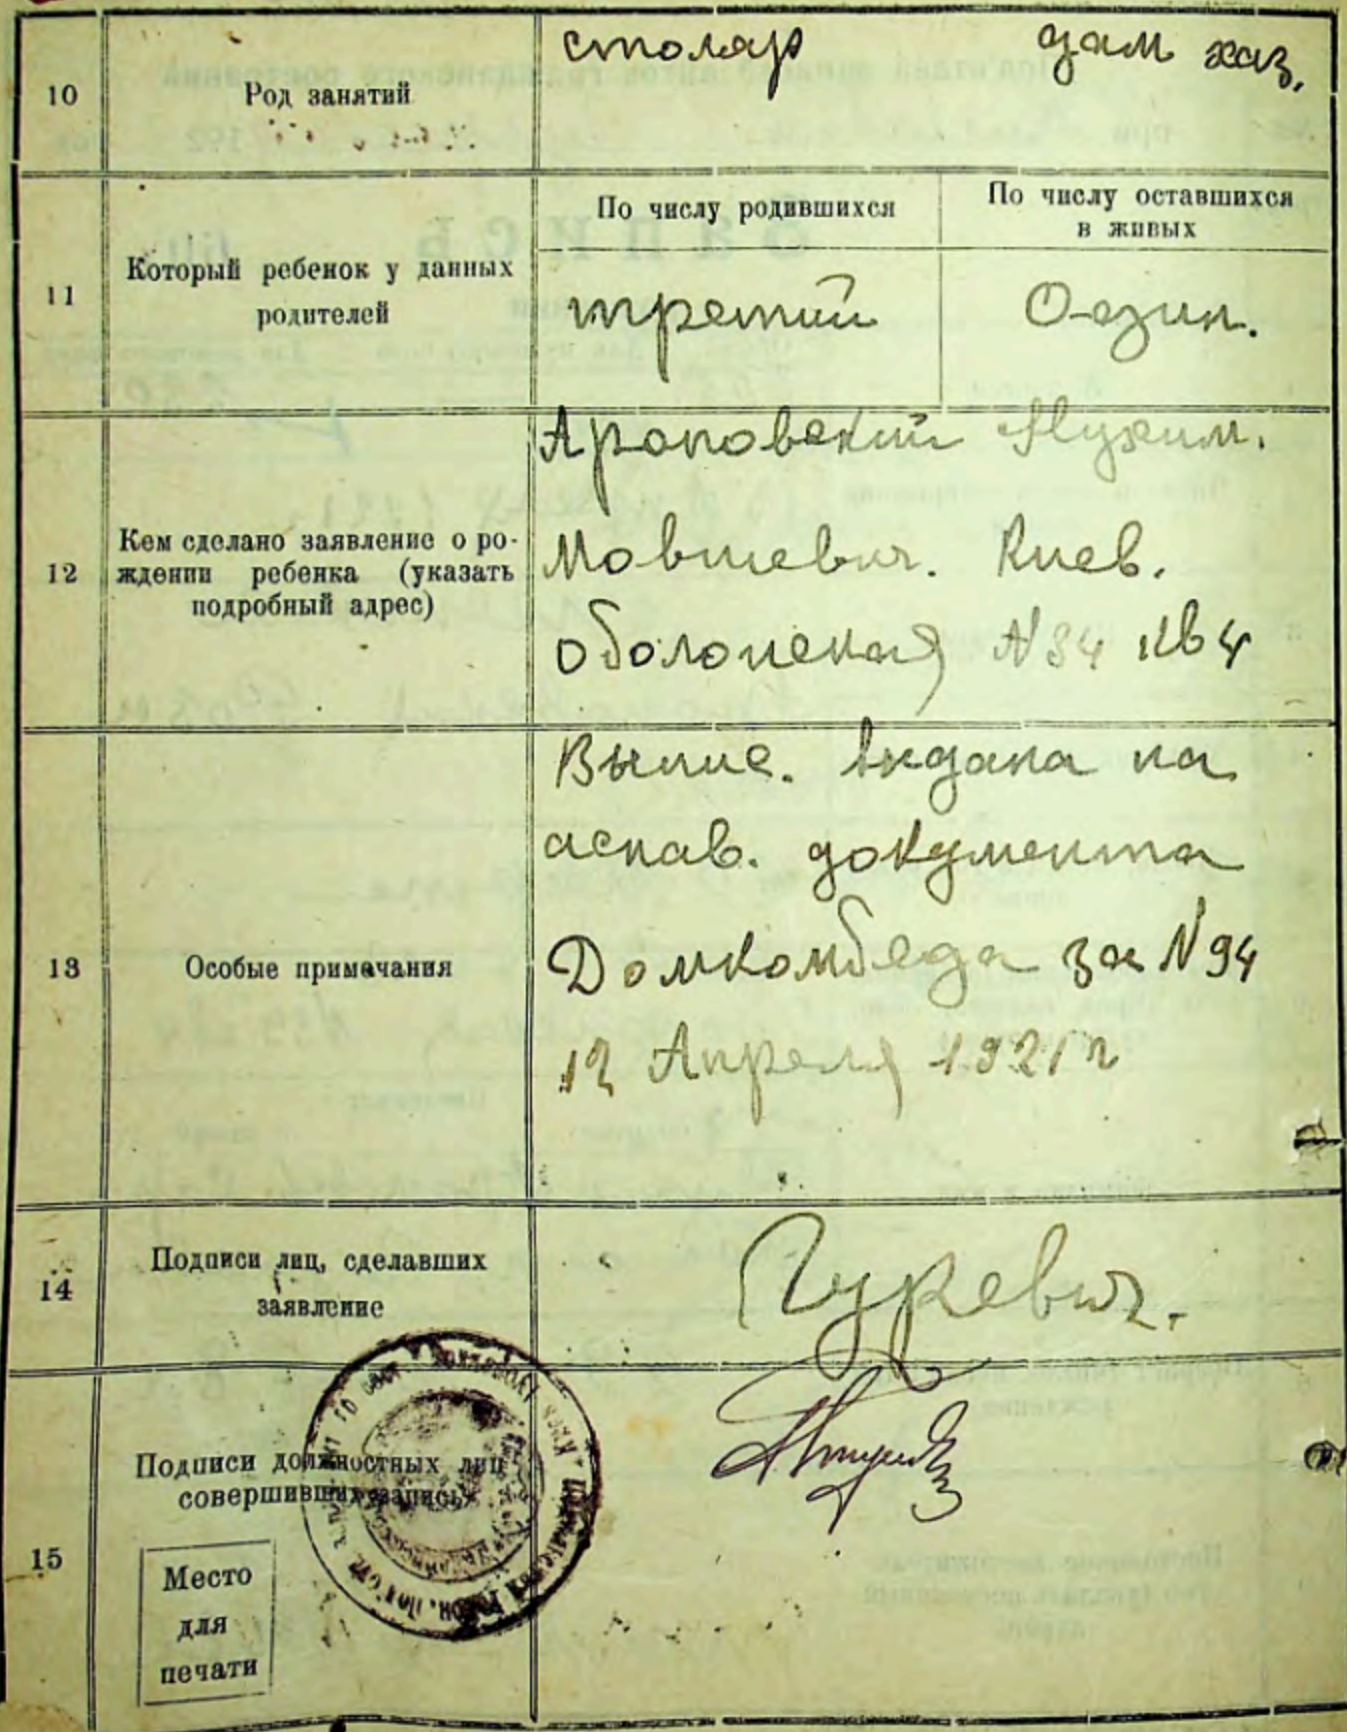 10
Род занятий
столяр дам хаз.
11
Который ребенок у данных
родителей
По числу родившихся
третий
По числу оставшихся
в живых
Один.
12
Кем сделано заявление о ро-
ждении ребенка (указать
подробный адрес)
Мовшевич. Киев.
оболонская N34 кв 4
13
Особые примечания
Выпис. видана на
аснав. документа
Домкомбеда за N 94
12 Апреля 1921 г
14
Подписи лиц, сделавших
заявление
Гуревич.
15
Подписи должностных лиц
совершивших запись
Место
для
печати